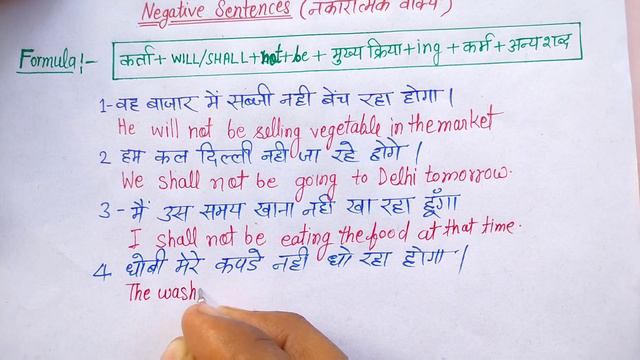 Negative Sentences (नकारात्मक वाक्य)
Formula:- कर्ता + WILL/SHALL + not + be + मुख्य क्रिया + ing + कर्म + अन्य शब्द
1- वह बाजार में सब्जी नही बेंच रहा होगा।
He will not be selling vegetable in the market
2 हम कल दिल्ली नही जा रहे होगे।
We shall not be going to Delhi tomorrow.
3- मैं उस समय खाना नही खा रहा हूँगा
I shall not be eating the food at that time.
4 धोबी मेरे कपडे नही धो रहा होगा।
The wash